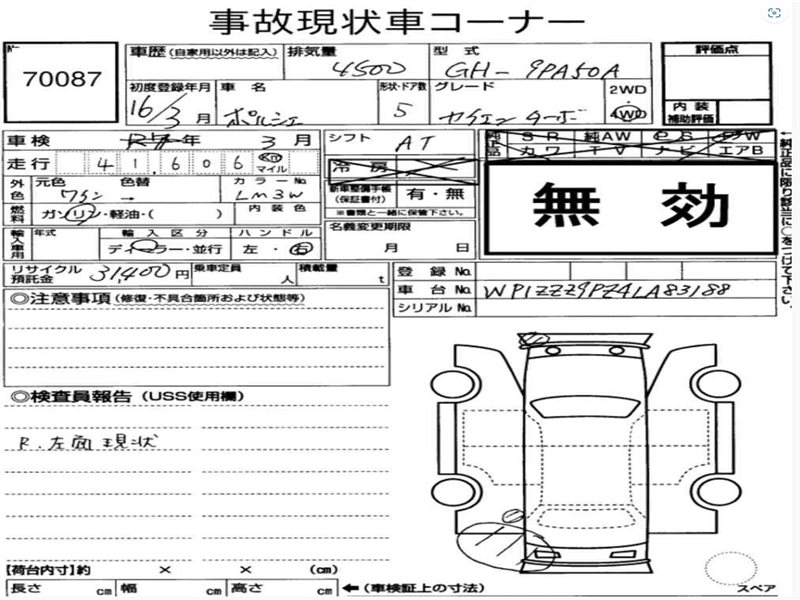 事故現状車コーナー
70087
車歴 (自家用以外は記入)
排気量 4500
型式 GH-9PA50A
評価点
初度登録年月 16/3月
車名 ポルシェ
形状・ドア数 5
グレード カイエンターボ
2WD
4WD
内装
補助評価
車検 年 3月
シフト AT
純正品
SR 純AW PS PW
カワ TV ナビ エアB
走行 41,606 Km マイル
冷房
外色 元色 色替 カラーNo.
ワイン → LM3W
新車整備手帳
(保証書付) 有・無
※書類と一緒に保管下さい。
無効
燃料 ガソリン・軽油・( ) 内装色
輸入車用 年式 輸入区分 ハンドル
ディーラー・並行 左・右
名義変更期限
月 日
リサイクル
預託金 31,400円
乗車定員 人
積載量 t
登録No.
車台No. WP1ZZZ9PZ4LA83188
シリアルNo.
◎注意事項 (修復・不具合箇所および状態等)
◎検査員報告 (USS使用欄)
R.左面現状
【荷台内寸】約 × × (cm)
長さ cm 幅 cm 高さ cm ←(車検証上の寸法)
スペア